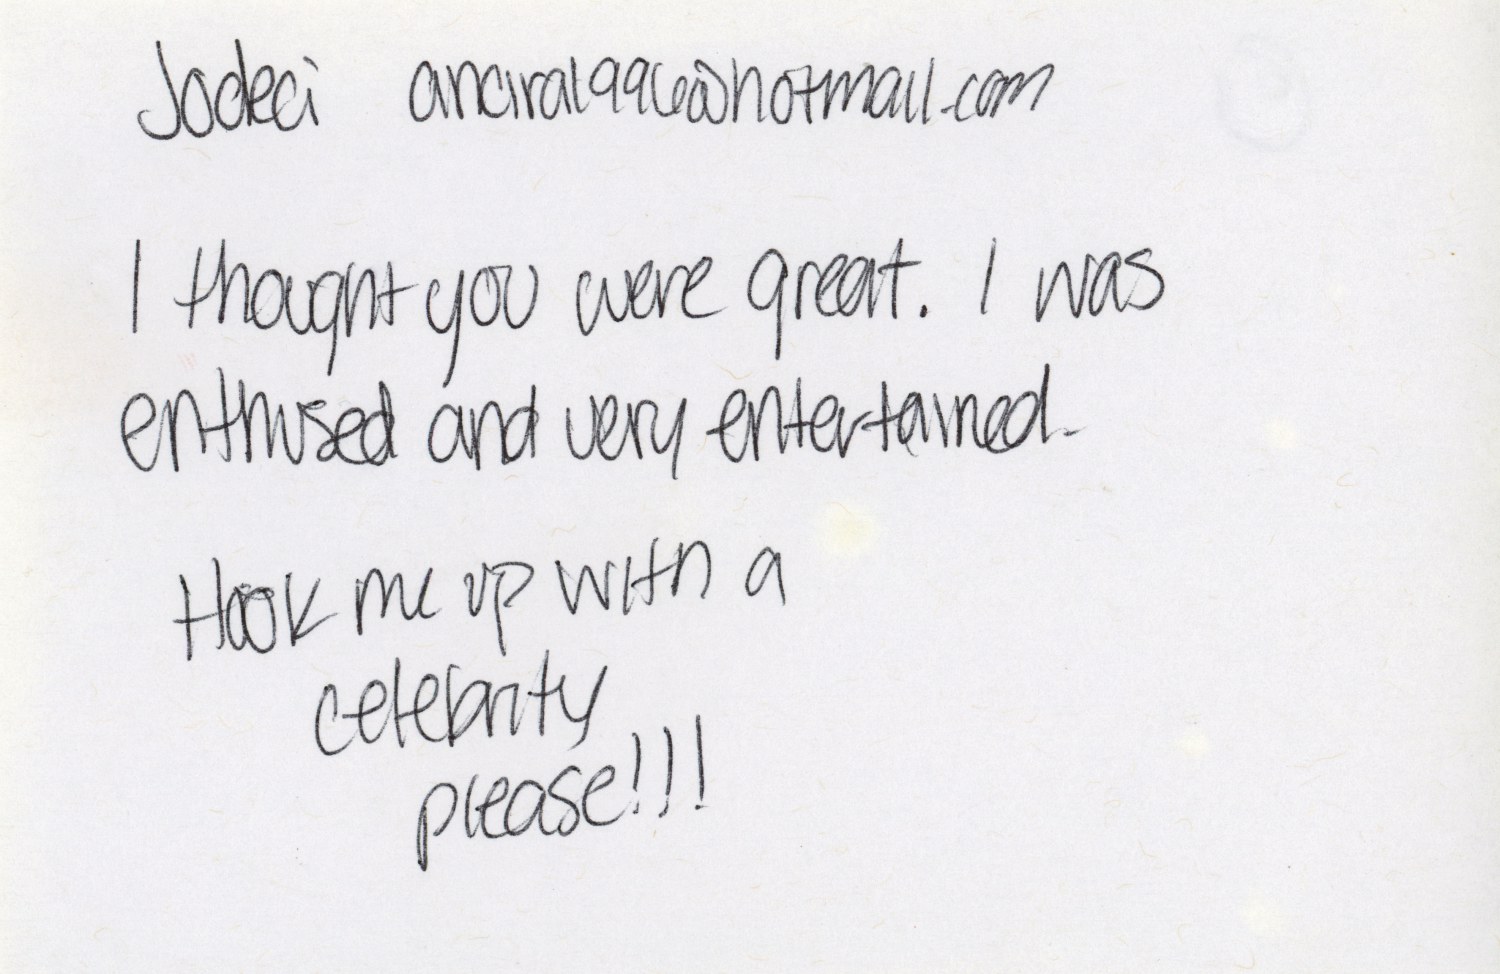 Jodeci ancira1996@hotmail.com
I thought you were great. I was
enthused and very entertained.
Hook me up with a
celebrity
please!!!